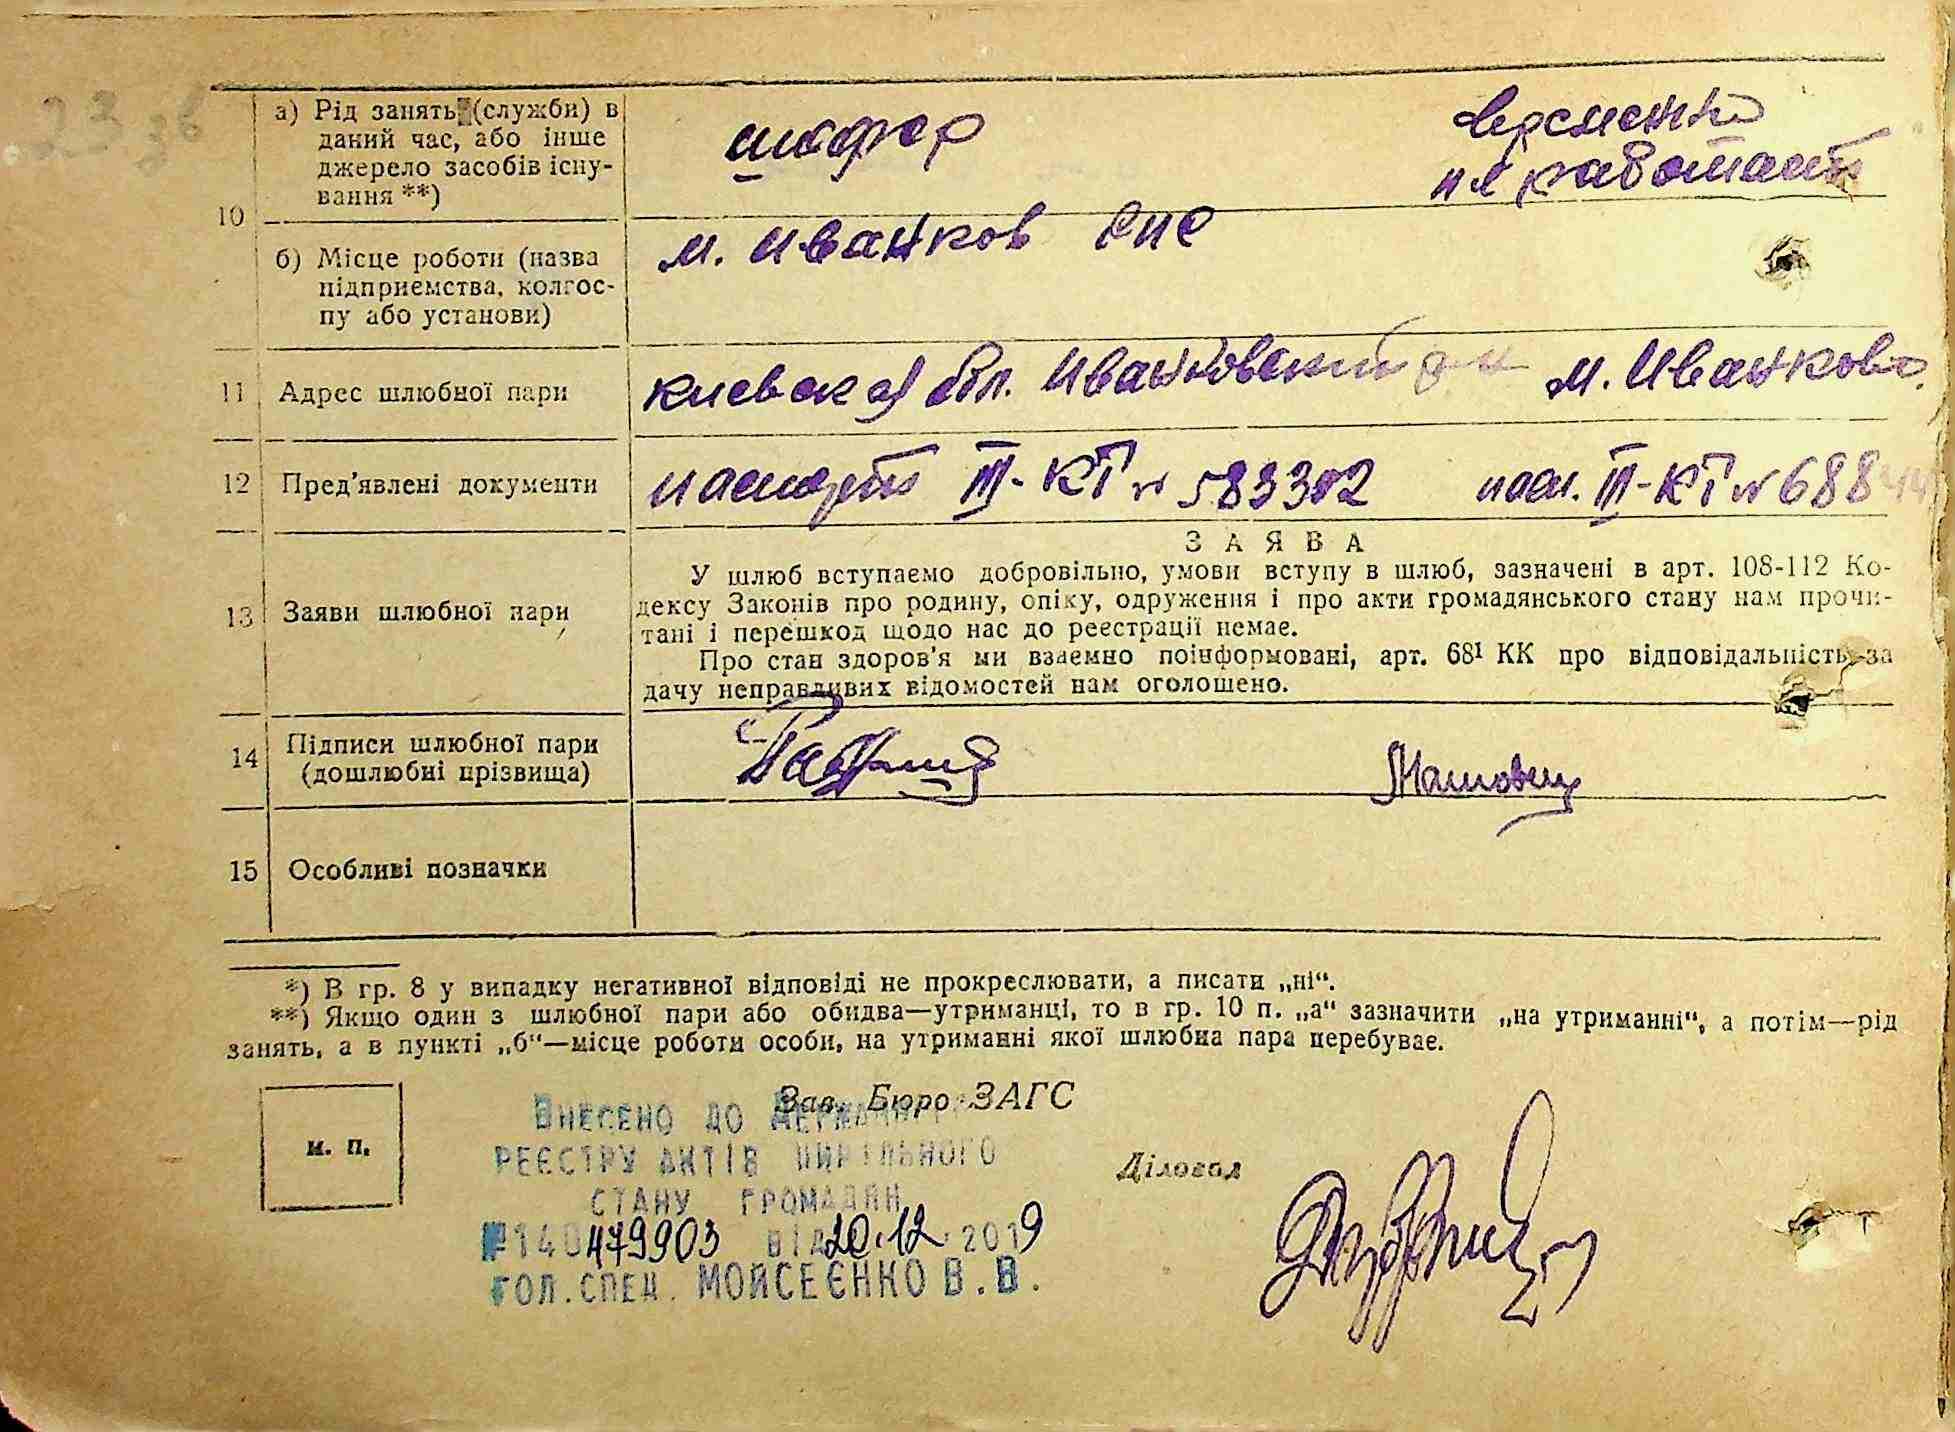 10
а) Рід занять (служби) в
даний час, або інше
джерело засобів існу-
вання **)
шофер
временно
не работает
б) Місце роботи (назва
підприємства, колгос-
пу або установи)
м. Иванков
11 Адрес шлюбної пари
Киевская обл. Иванковский м. Иванково
12 Пред’явлені документи
паспорт III-КТ № 583302 пасп. III-КТ № 688
13 Заяви шлюбної пари
ЗАЯВА
У шлюб вступаємо добровільно, умови вступу в шлюб, зазначені в арт. 108-112 Ко-
дексу Законів про родину, опіку, одруження і про акти громадянського стану нам прочи-
тані і перешкод щодо нас до реєстрації немає.
Про стан здоров’я ми взаємно поінформовані, арт. 68¹ КК про відповідальність за
дачу неправдивих відомостей нам оголошено.
14 Підписи шлюбної пари
(дошлюбні прізвища)
15 Особливі позначки
*) В гр. 8 у випадку негативної відповіді не прокреслювати, а писати „ні“.
**) Якщо один з шлюбної пари або обидва—утриманці, то в гр. 10 п. „а“ зазначити „на утриманні“, а потім—рід
занять, а в пункті „б“—місце роботи особи, на утриманні якої шлюбна пара перебуває.
м. п.
Зав. Бюро ЗАГС
Діловод
ВНЕСЕНО ДО ДЕРЖАВНОГО
РЕЄСТРУ АКТІВ ЦИВІЛЬНОГО
СТАНУ ГРОМАДЯН
№140479903 ВІД 20.12.2019
ГОЛ.СПЕЦ. МОЙСЕЄНКО В.В.